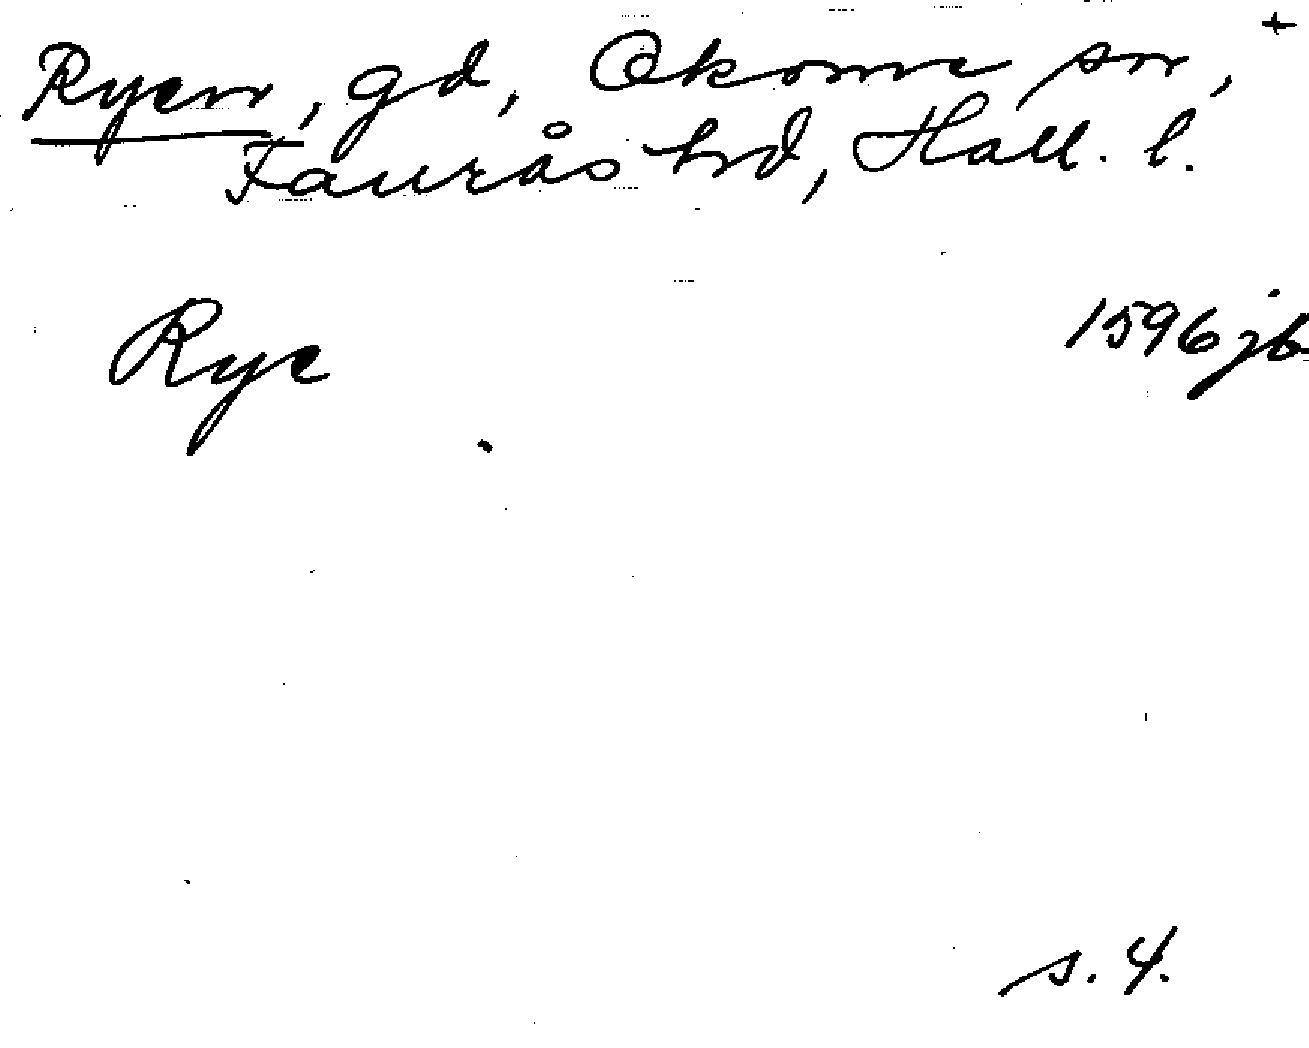 +
Ryen, gd, Okome sn,
Faurås hd, Hall. l.
Rye 1596 jb
s. 4.